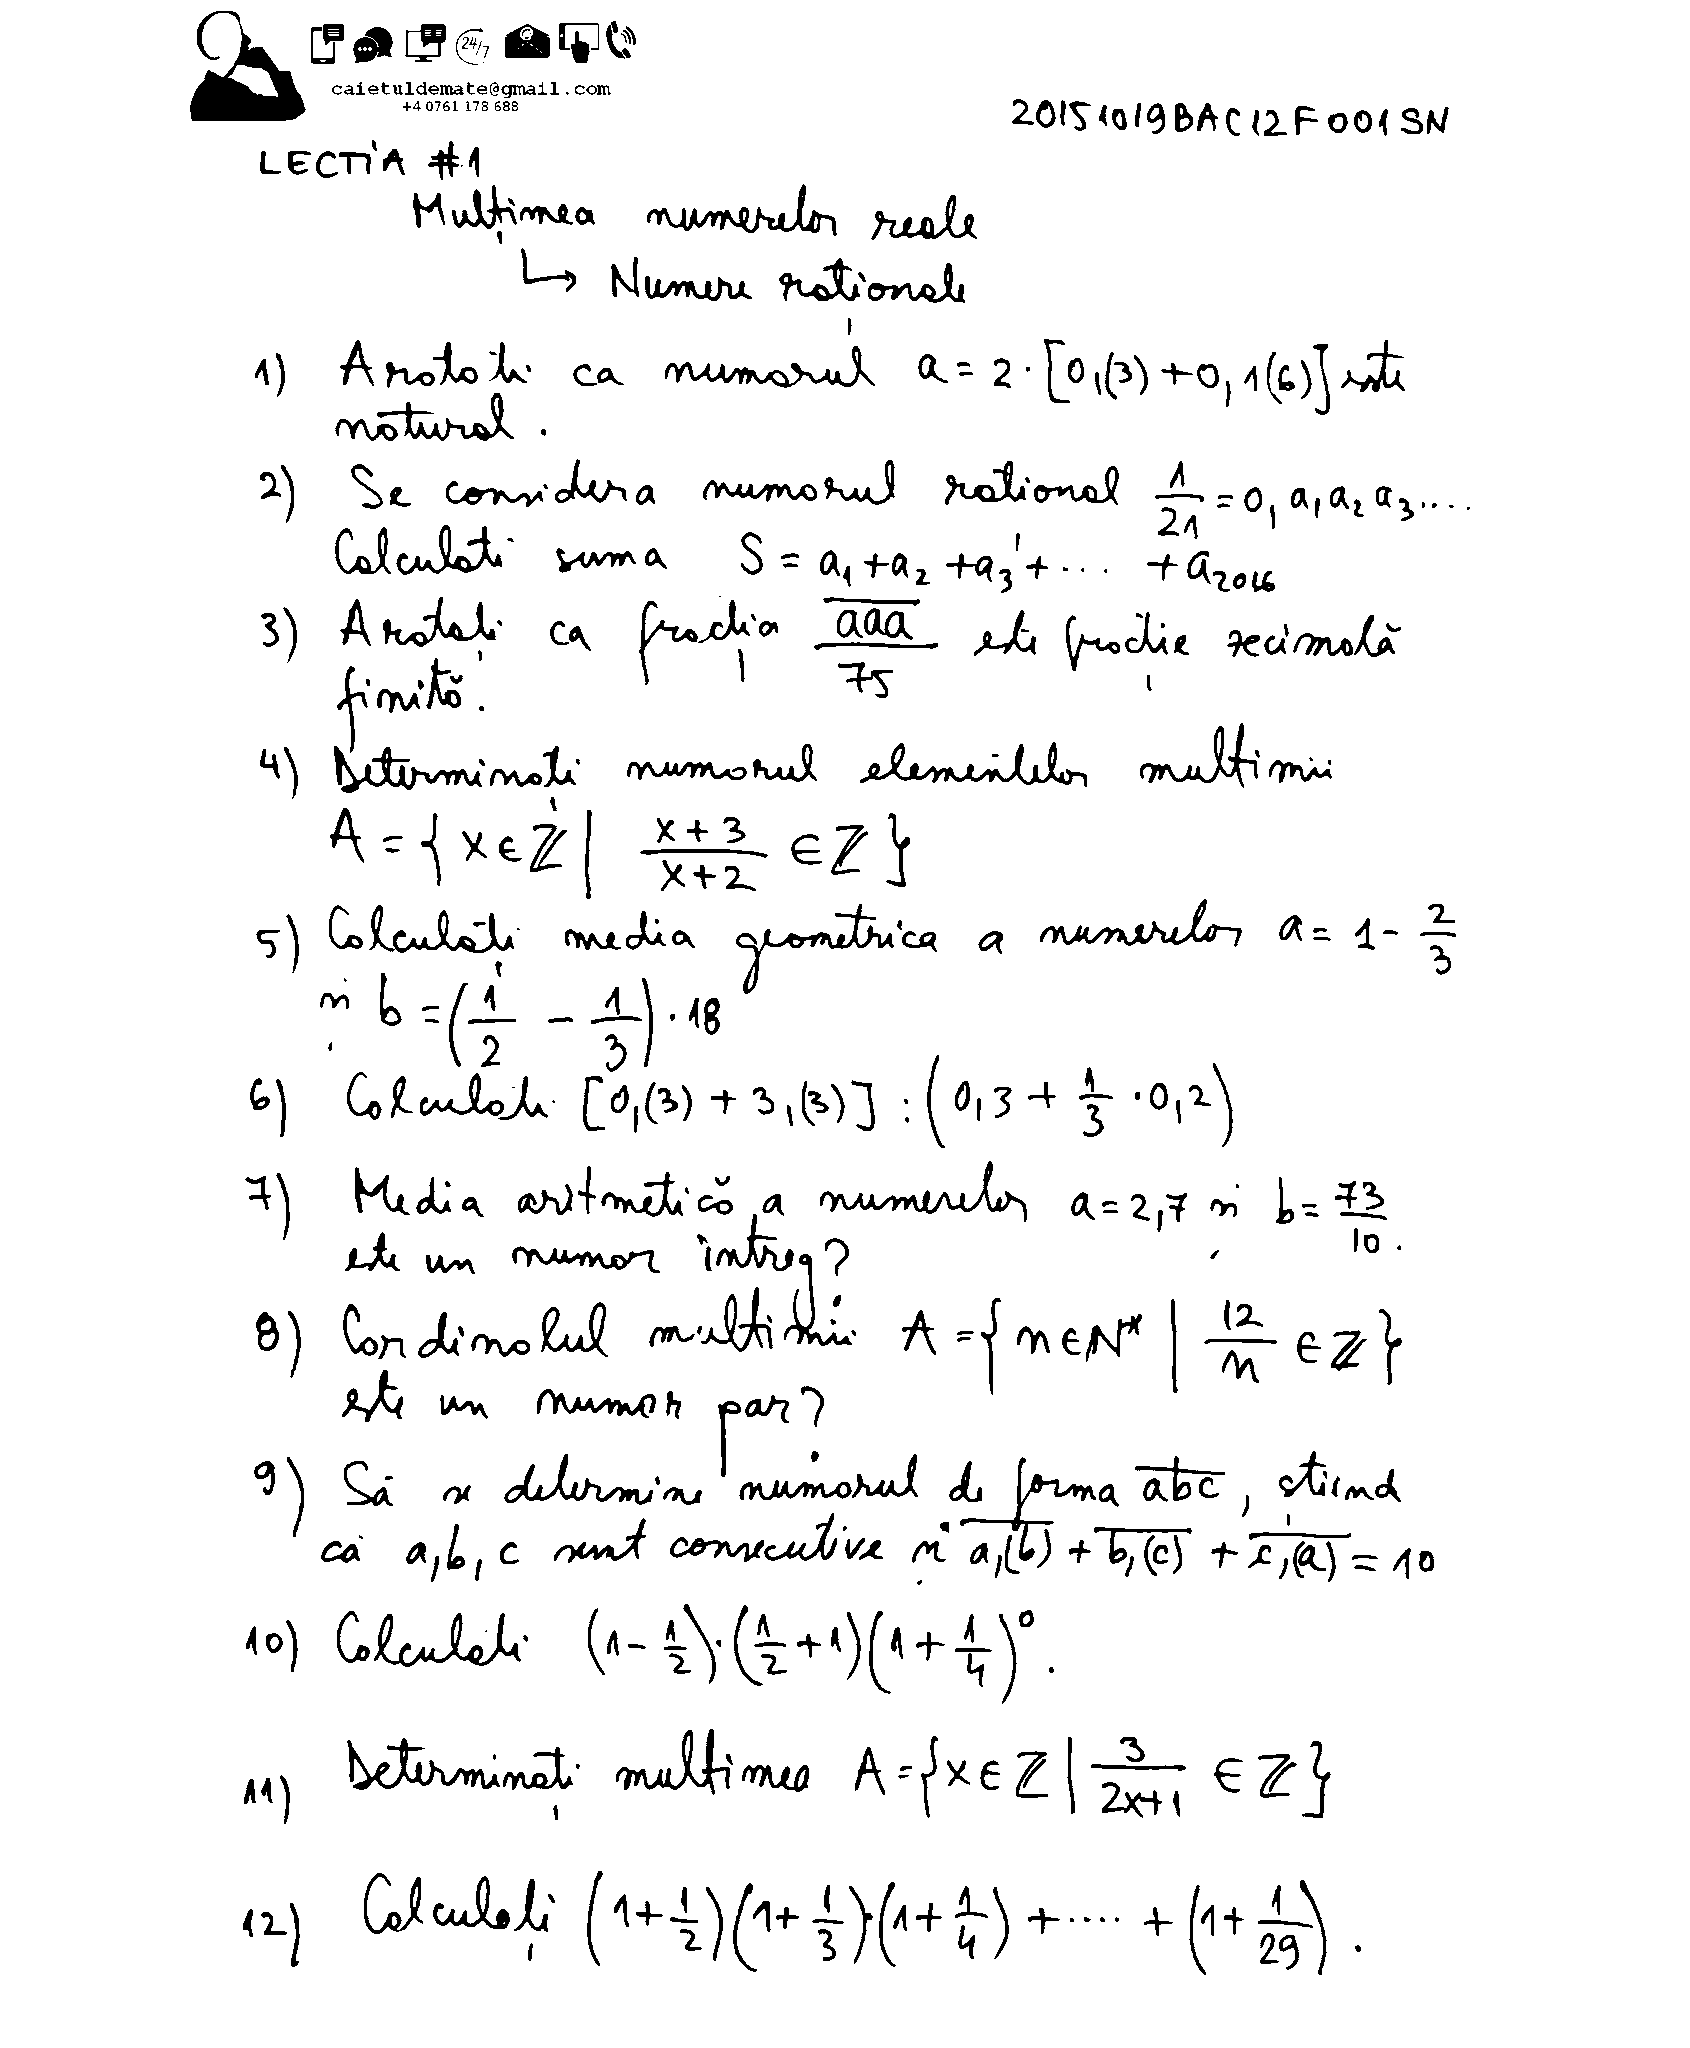 24/7
caietuldemate@gmail.com
+4 0761 178 688
20151019BAC12F001SN
LECTIA #1
Mulțimea numerelor reale
↳ Numere raționale
1) Aratati ca numarul a = 2 · [0,(3) + 0,1(6)] este
natural.
2) Se considera numarul rational 1/21 = 0,a₁a₂a₃....
Calculati suma S = a₁ + a₂ + a₃ + ... + a₂₀₁₆
3) Aratați ca fracția a̅a̅a̅/75 este fracție zecimală
finită.
4) Determinați numarul elementelor multimii
A = { x ∈ ℤ | (x+3)/(x+2) ∈ ℤ }
5) Calculați media geometrica a numerelor a = 1 - 2/3
și b = (1/2 - 1/3) · 18
6) Calculati [0,(3) + 3,(3)] : (0,3 + 1/3 · 0,2)
7) Media aritmetică a numerelor a = 2,7 și b = 73/10.
este un numar întreg?
8) Cardinalul multimii A = { n ∈ N* | 12/n ∈ ℤ }
este un numar par?
9) Să se determine numarul de forma a̅b̅c̅, știind
că a, b, c sunt consecutive și a̅,̅(̅b̅)̅ + b̅,̅(̅c̅)̅ + c̅,̅(̅a̅)̅ = 10
10) Calculati (1 - 1/2)·(1/2 + 1)(1 + 1/4)⁰.
11) Determinați multimea A = { x ∈ ℤ | 3/(2x+1) ∈ ℤ }
12) Calculați (1 + 1/2)(1 + 1/3)·(1 + 1/4) + .... + (1 + 1/29).